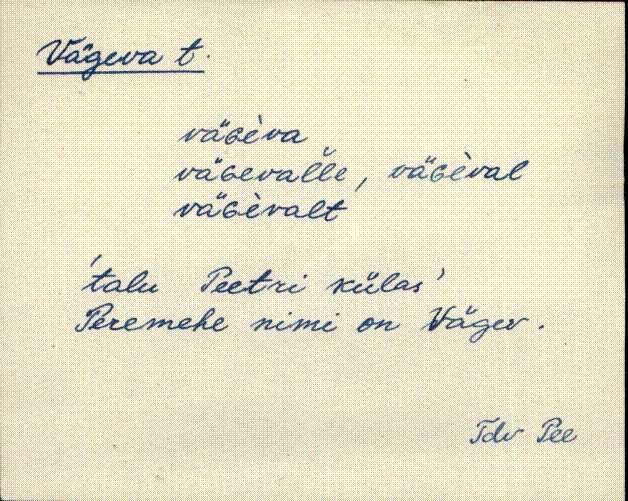 Vägeva t.
väɢèva
väɢevalľe, väɢèval
väɢèvalt
'talu Peetri külas'
Peremehe nimi on Vägev.
Tdv Pee